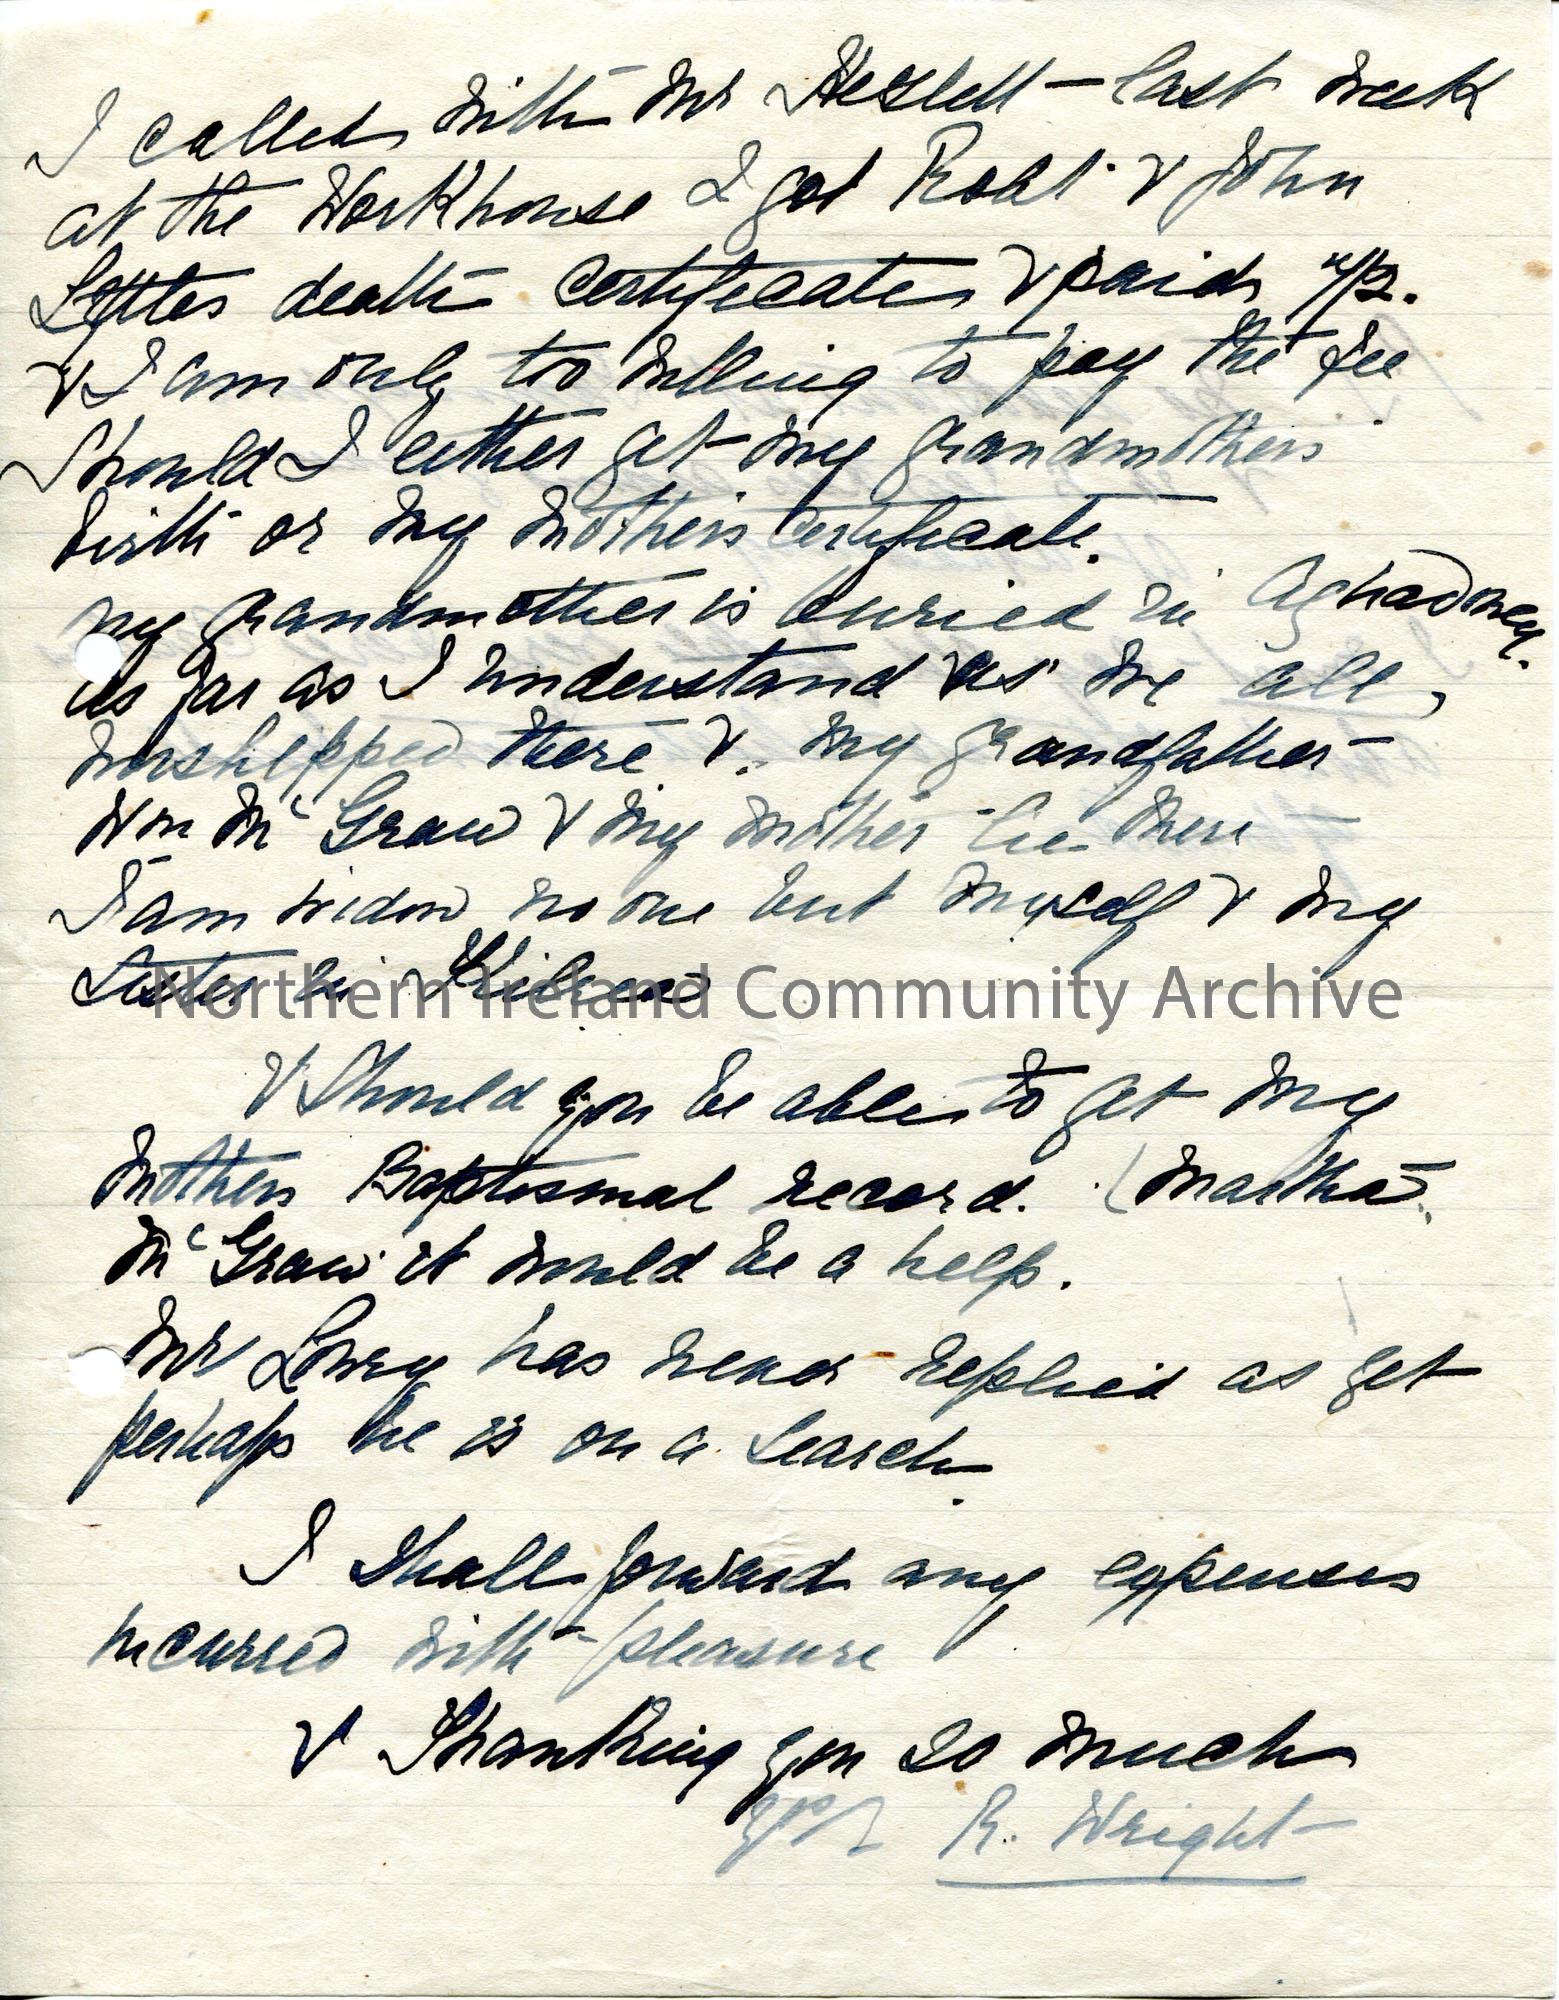 I called with Mr Heslett - last week
at the Workhouse I got Robt. & John
Lyttles death certificates & paid
& I am only too willing to pay the fee
Should I either get my grandmothers
birth or my mothers certificate.
my grandmother is buried in Aghadowey.
as far as I understand as we all,
worshipped there & my grandfather
Wm McGraw & my mother lie there
I am widow no one but myself & my
Sister in Kilrea
Northern Ireland Community Archive
& Should you be able to get my
mothers Baptismal record. (Martha
McGraw it would be a help.
Mr Lowry has never replied as yet
perhaps he is on a search.
I shall forward any expenses
incurred with pleasure
& Thanking you so much
R. Wright